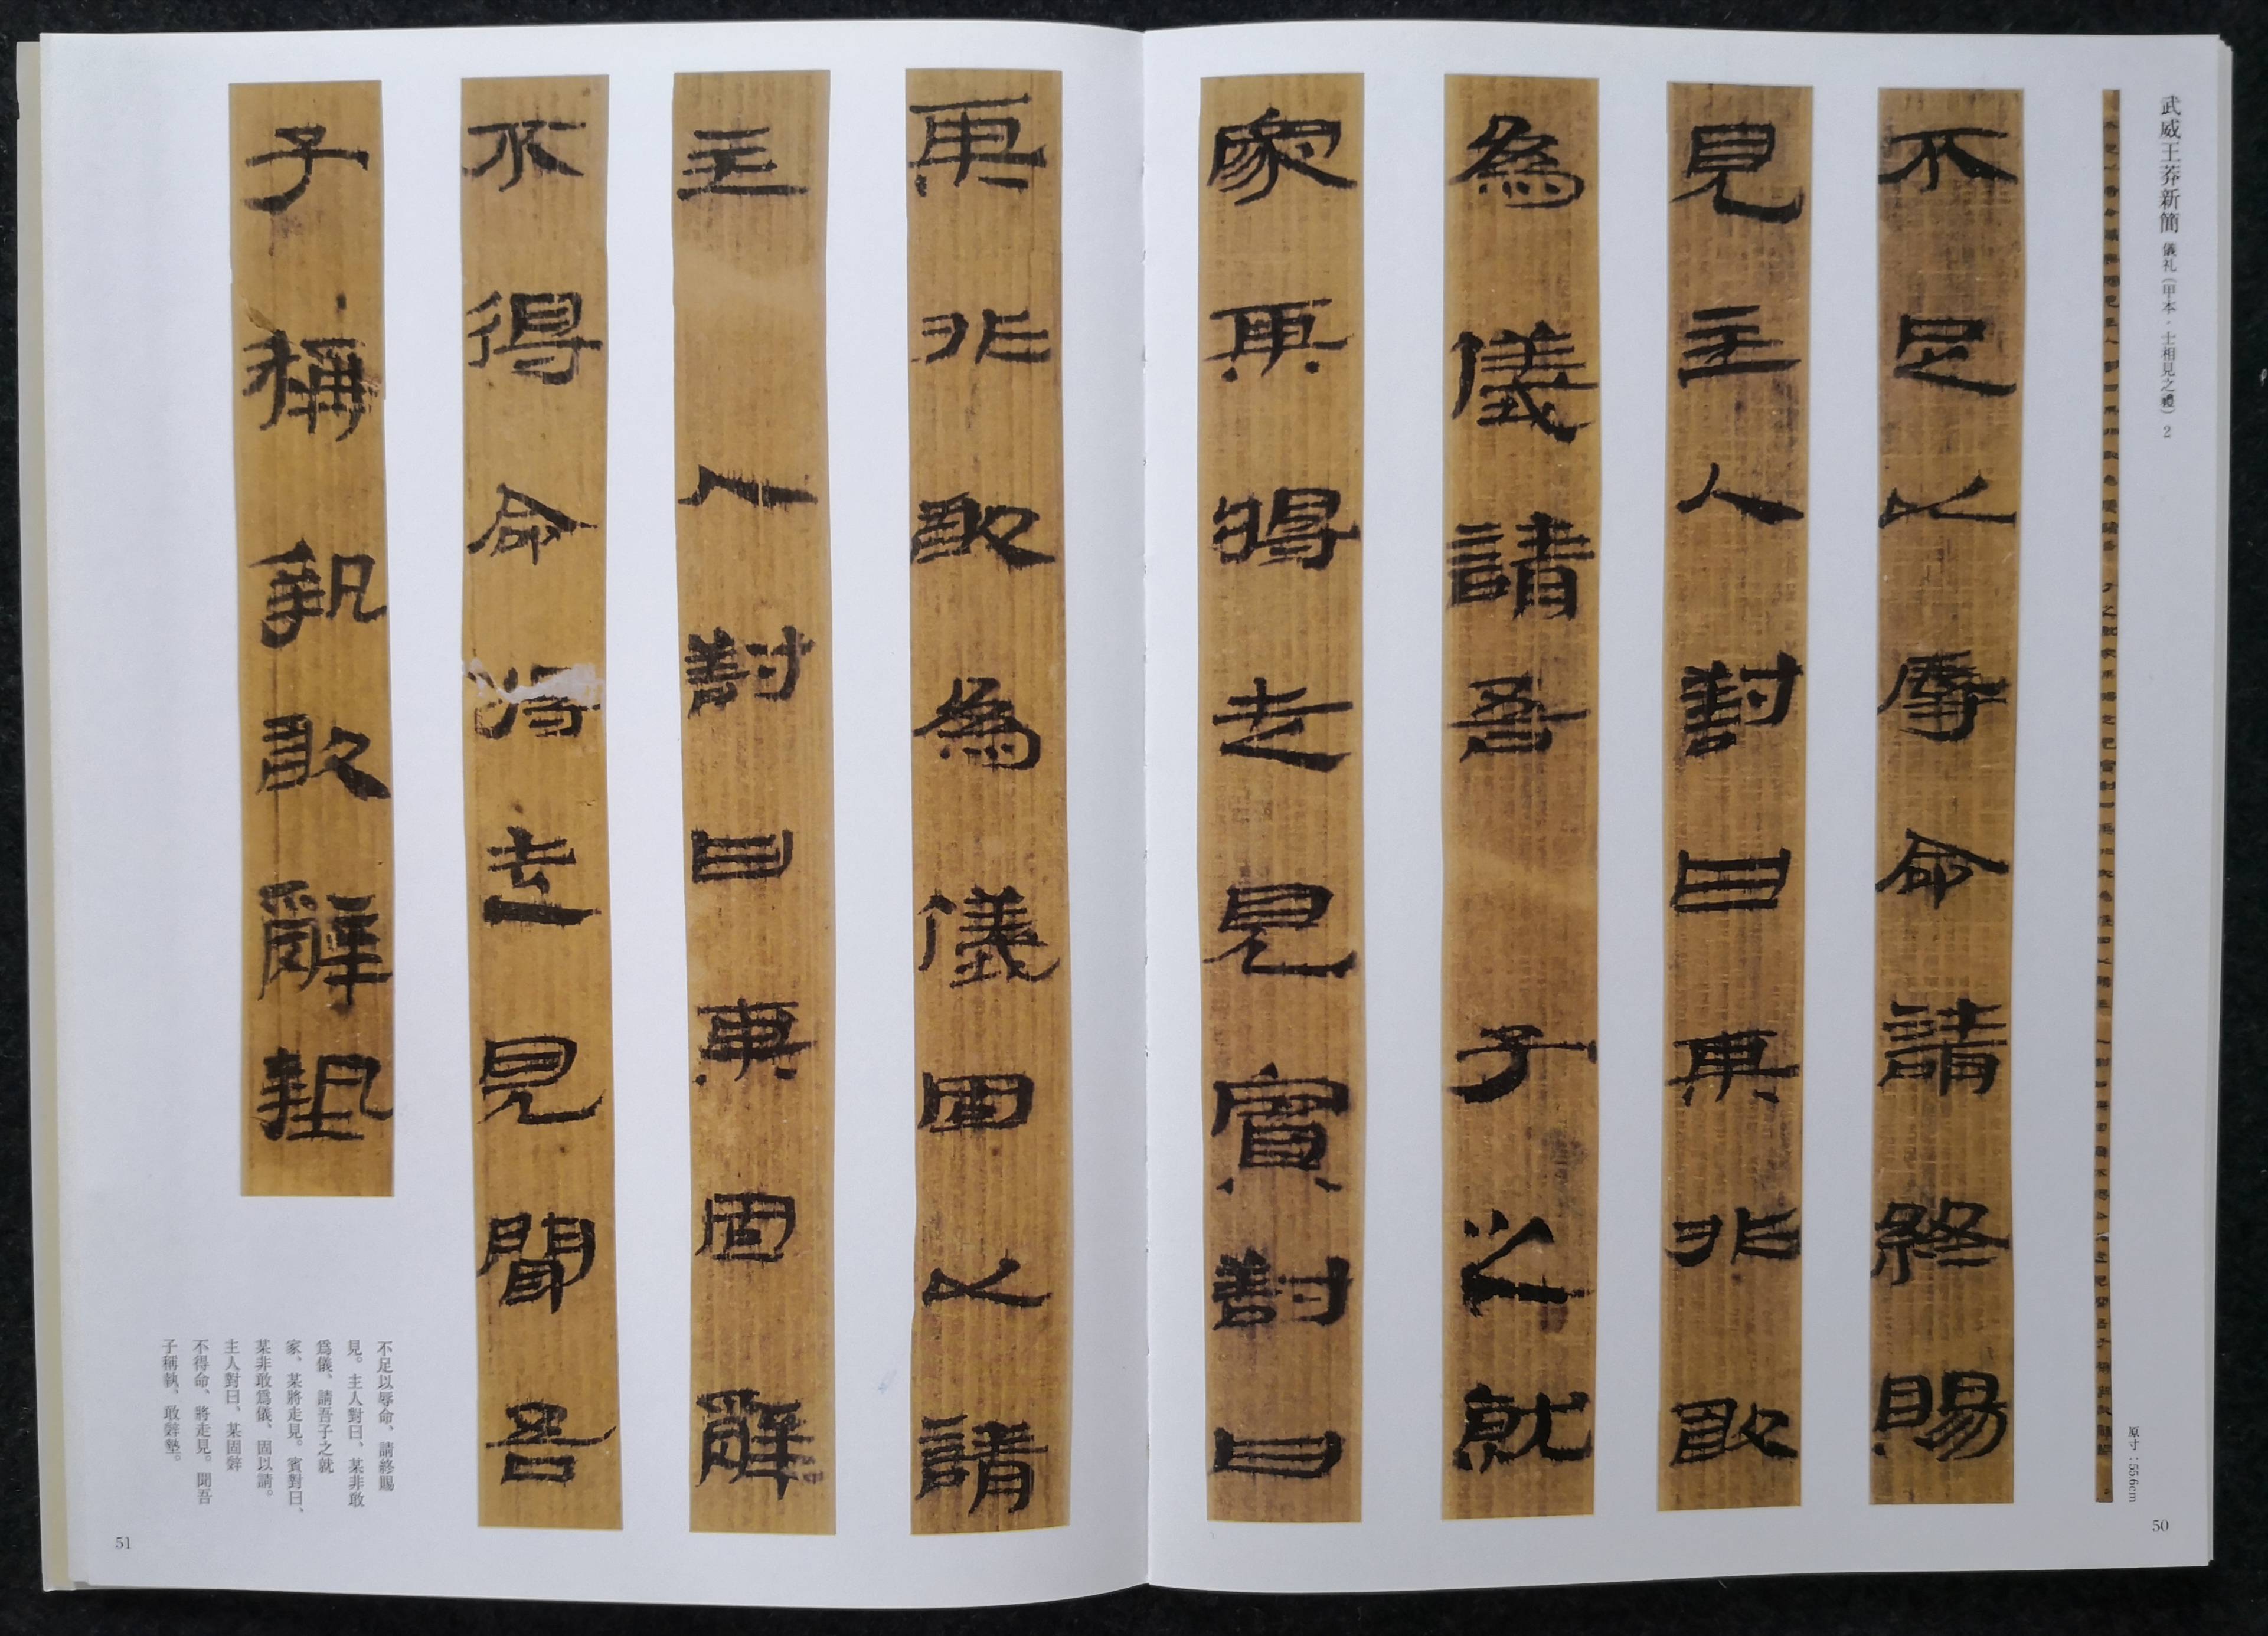 武威王莽新簡 儀礼（甲本・士相見之禮） 2
原寸：55.6cm
50
不足以辱命請終賜
見主人對曰某非敢
為儀請吾子之就
家某將走見賓對曰
某非敢為儀固以請
主人對曰某固辭
不得命將走見聞吾
子稱執敢辭摯
不足以辱命、請終賜
見。主人對曰、某非敢
爲儀、請吾子之就
家、某將走見。賓對曰、
某非敢爲儀、固以請。
主人對曰、某固辤
不得命、將走見。聞吾
子稱執、敢辤墊。
51